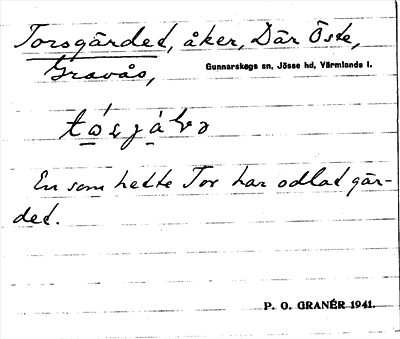 Torsgärdet, åker, Där Öste,
Gravås,
Gunnarskogs sn, Jösse hd, Värmlands l.
En som hette Tor har odlat gär-
det.
P. O. GRANÉR 1941.